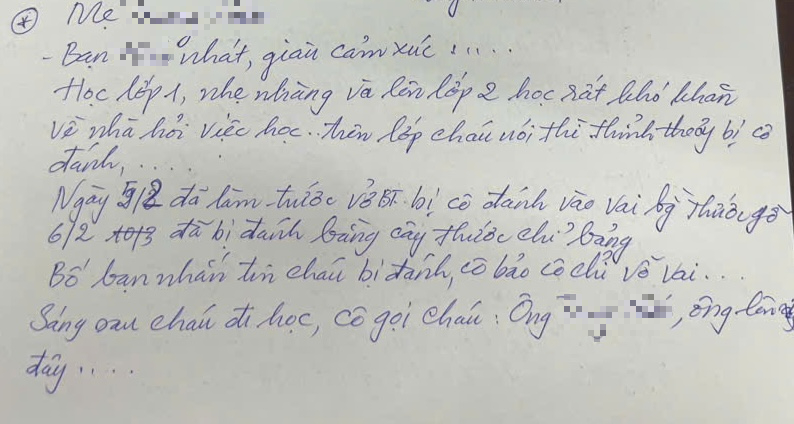 * Mẹ
- Bạn nhát, giàu cảm xúc :....
Học lớp 1, nhẹ nhàng và lên lớp 2 học rất khó khăn
Về nhà hỏi việc học.. trên lớp cháu nói thì thỉnh thoảng bị cô
đánh, ....
Ngày 5/2 đã làm trước vở BT. bị cô đánh vào vai bg thước gỗ
6/2 10/3 đã bị đánh bằng cây thước chỉ bảng
Bố bạn nhắn tin cháu bị đánh, cô bảo cô chỉ vỗ vai...
Sáng sau cháu đi học, cô gọi cháu: Ông , ông lên
đây.....